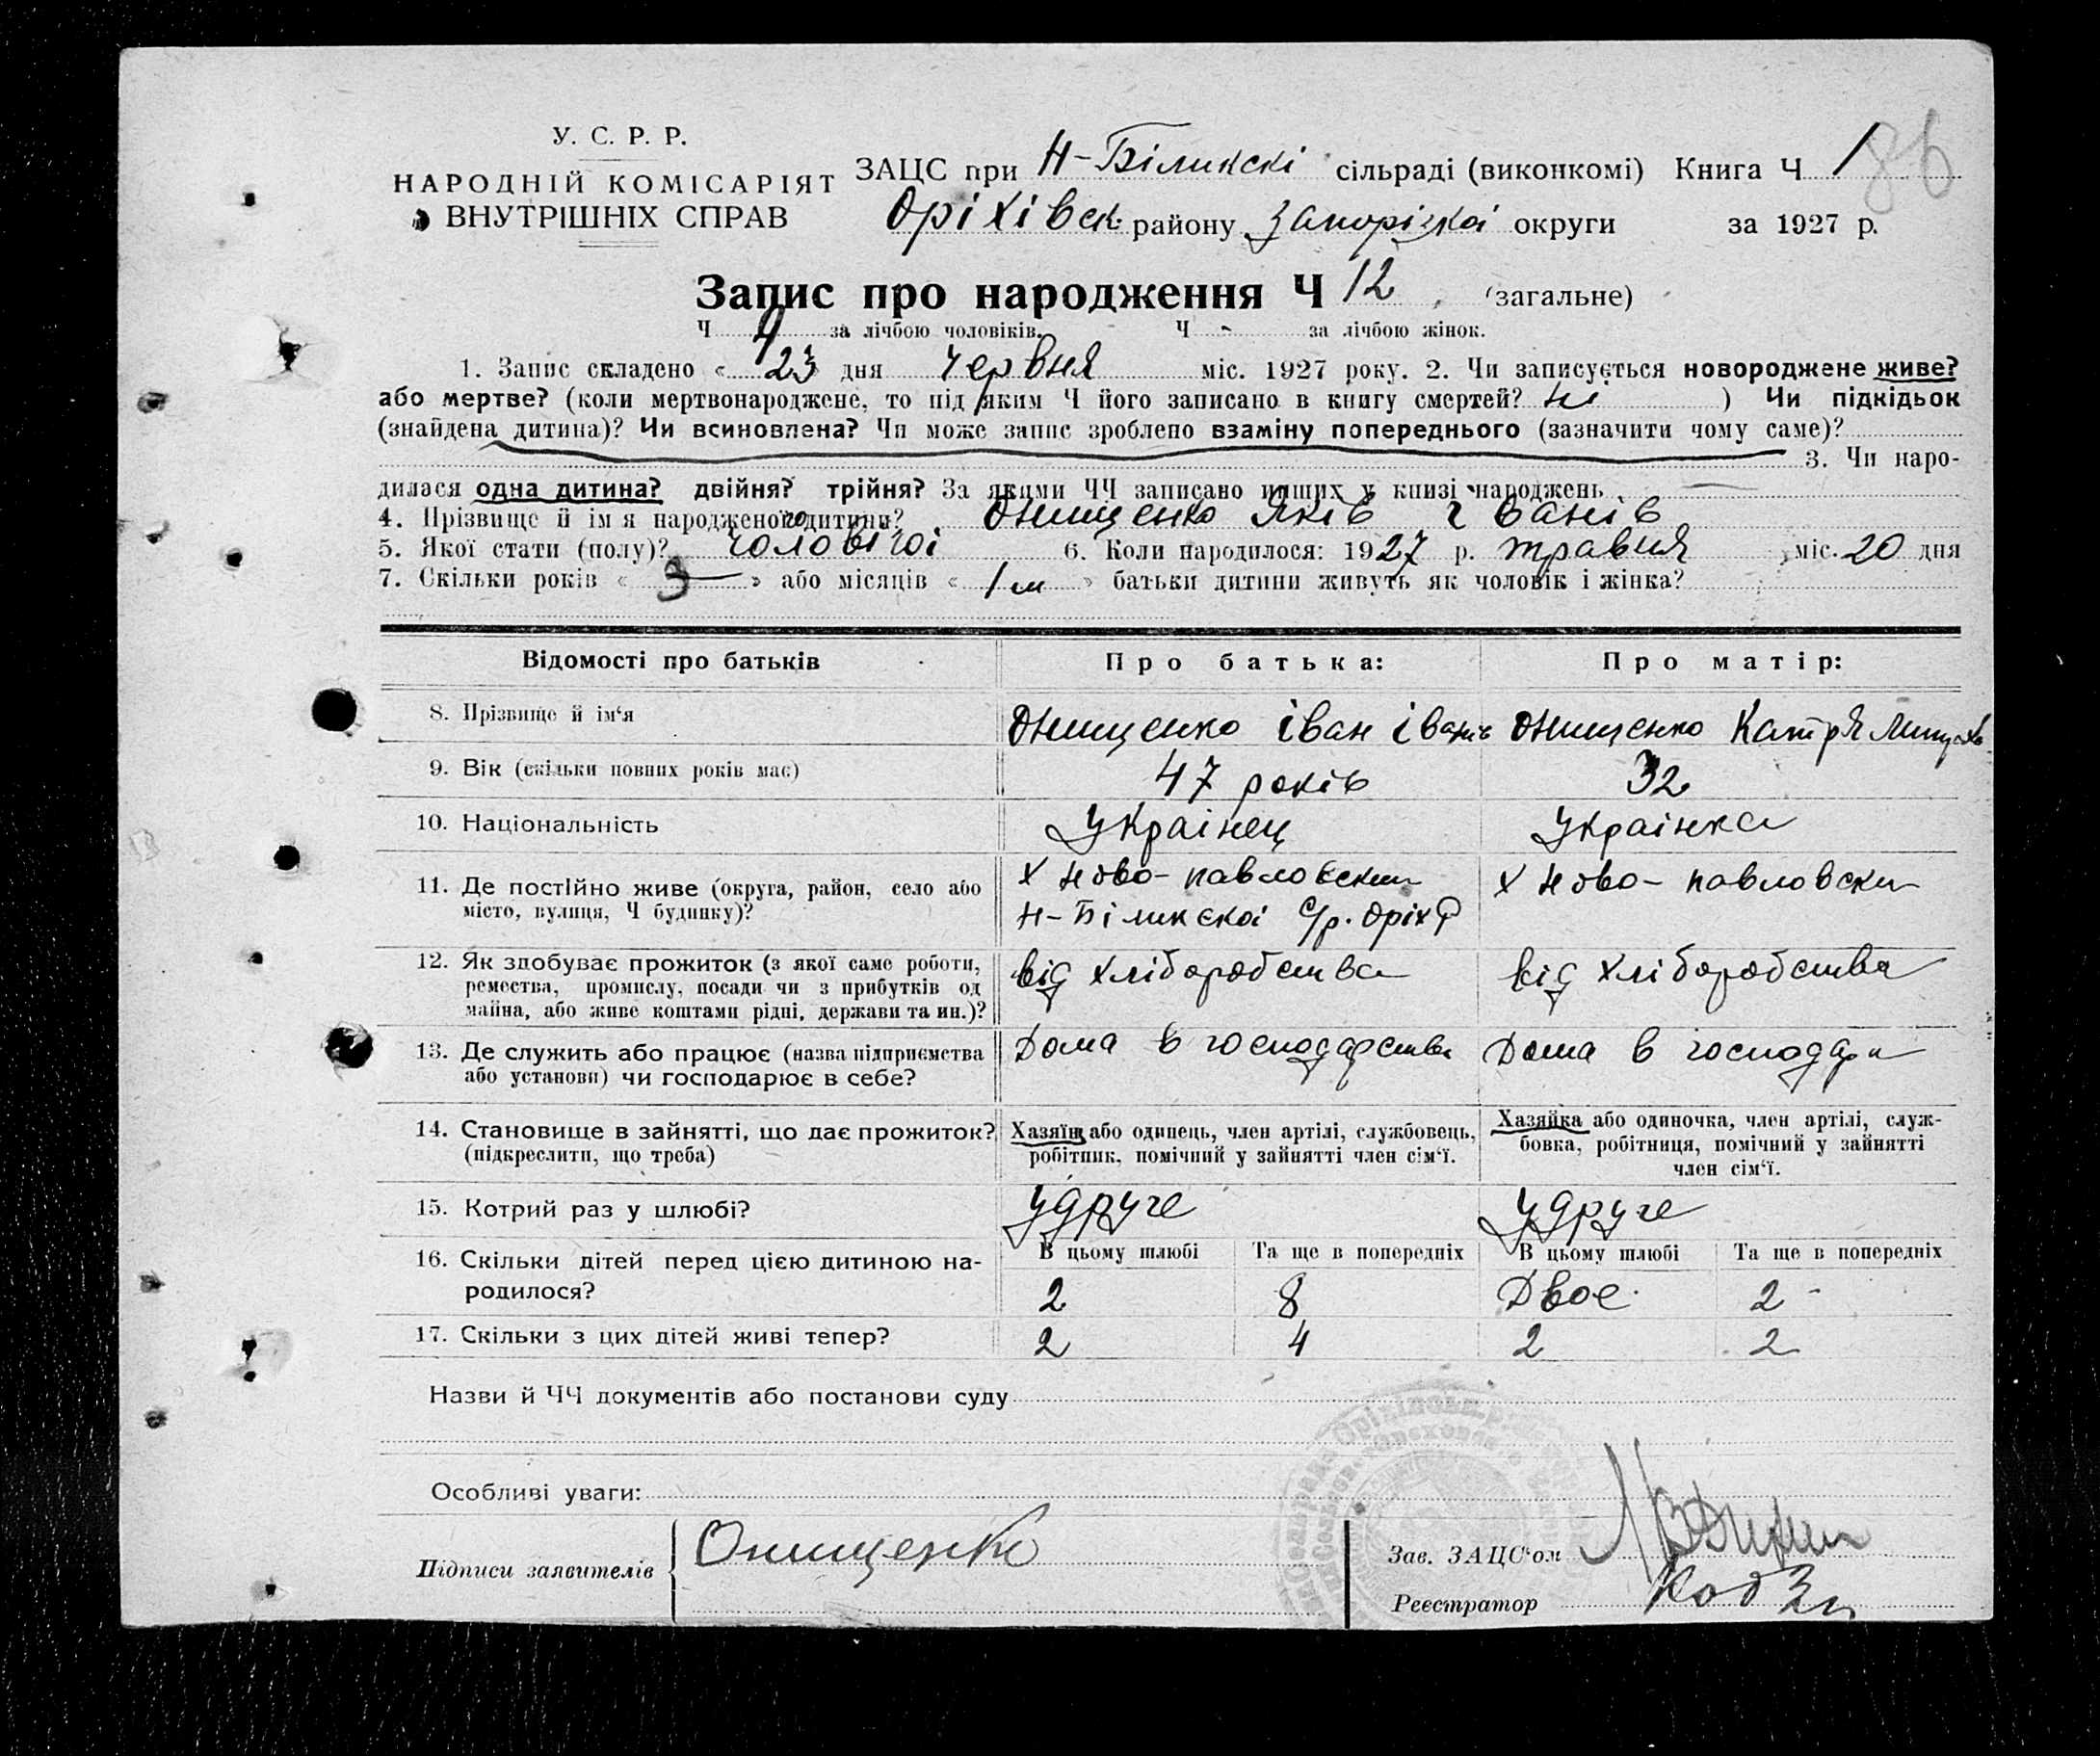 У. С. Р. Р.
НАРОДНІЙ КОМІСАРІЯТ
ВНУТРІШНІХ СПРАВ
ЗАЦС при Н-Біликскі сільраді (виконкомі) Книга Ч 1 86
Оріхівск. району Запорізкоі округи за 1927 р.
Запис про народження Ч 12 (загальне)
Ч 9 за лічбою чоловіків. Ч - за лічбою жінок.
1. Запис складено « 23 дня червня міс. 1927 року. 2. Чи записується новороджене живе?
або мертве? (коли мертвонароджене, то під яким Ч його записано в книгу смертей? ні ) Чи підкідьок
(знайдена дитина)? Чи всиновлена? Чи може запис зроблено взаміну попереднього (зазначити чому саме)?
3. Чи наро-
дилася одна дитина? двійня? трійня? За якими ЧЧ записано инших у книзі народжень
4. Прізвище й ім'я народженої дитини? Онищенко Яків Іванів
5. Якої стати (полу)? чоловічоі 6. Коли народилося: 1927 р. травня міс. 20 дня
7. Скільки років « » або місяців « 1 м » батьки дитини живуть як чоловік і жінка?
Відомості про батьків Про батька: Про матір:
8. Прізвище й ім'я Онищенко Іван Іванів Онищенко Катря
9. Вік (скільки повних років має) 47 років 32
10. Національність Українец Українка
11. Де постійно живе (округа, район, село або місто, вулиця, Ч будинку)?
х Ново-павловскии
Н-Біликскоі с/р. Оріх Р
х Ново-павловски
12. Як здобуває прожиток (з якої саме роботи, ремества, промислу, посади чи з прибутків од майна, або живе коштами рідні, держави та ин.)?
від хліборобства від хліборобства
13. Де служить або працює (назва підприємства або установи) чи господарює в себе?
Дома в господарстві Дома в господар
14. Становище в зайнятті, що дає прожиток? (підкреслити, що треба)
Хазяїн або одинець, член артілі, службовець, робітник, помічний у зайнятті член сім'ї.
Хазяйка або одиночка, член артілі, службовка, робітниця, помічний у зайнятті член сім'ї.
15. Котрий раз у шлюбі? Удруге Удруге
16. Скільки дітей перед цією дитиною народилося?
В цьому шлюбі Та ще в попередніх В цьому шлюбі Та ще в попередніх
2 8 Двое 2
17. Скільки з цих дітей живі тепер? 2 4 2 2
Назви й ЧЧ документів або постанови суду
Особливі уваги:
Підписи заявителів Онищенко
Зав. ЗАЦС'ом
Реєстратор